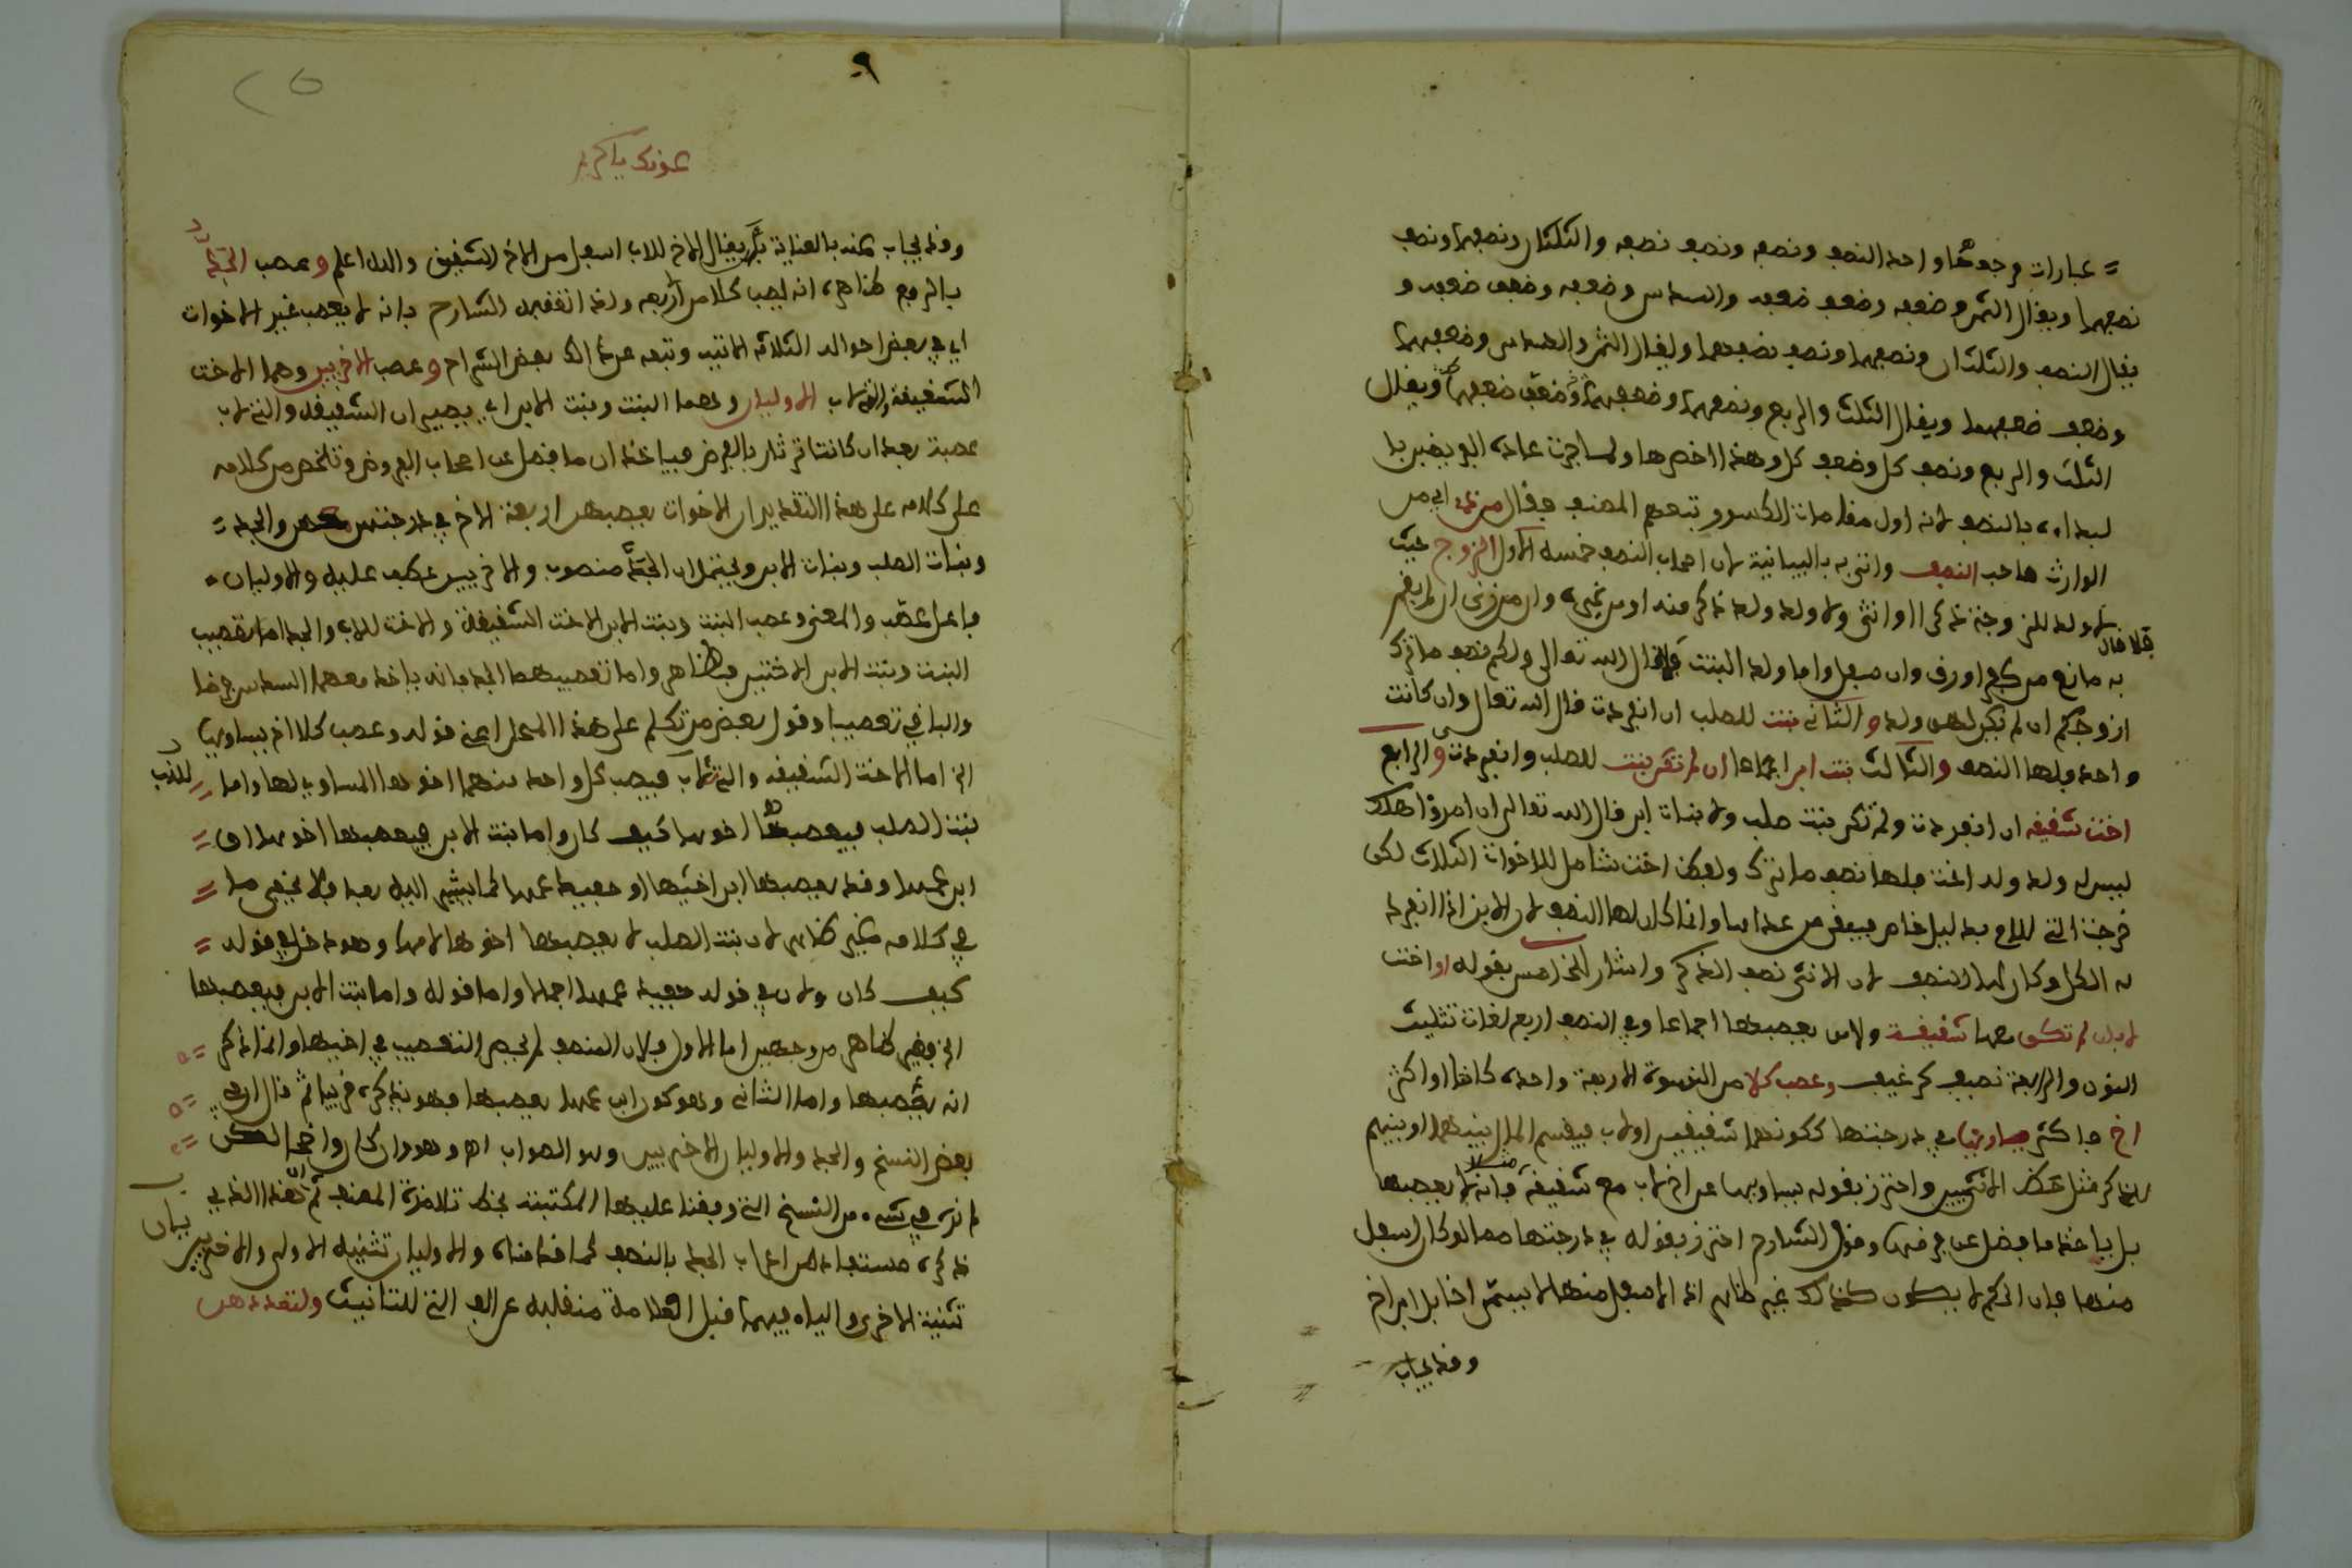 عبارات مرجعها واحد النصف ونصفه ونصف نصفه والثلثان ونصفهما ونصف
نصفهما ويقال الثمن وضعفه وضعف ضعفه والسدس وضعفه وضعف ضعفه و
يقال النصف والثلثان ونصفهما ونصف نصفهما ويقال الثمن والسدس وضعفهما
وضعف ضعفهما ويقال الثلث والربع ونصفهما وضعفهما وضعف ضعفهما ويقال
الثلث والربع ونصف كل وضعف كل وهذه اخصرها ولما جرت عادة الفرضيين با
لبداءة بالنصف لانه اول مقامات الكسور تبعهم المصنف فقال من اي من
الوارث صاحب النصف واتى به بالبيانية لان اصحاب النصف خمسة الاول الزوج حيث
لا ولد للزوجة ذكرا او انثى ولا ولد ولد ذكر منه او من غيره وان من زنى ان لم يقم
به مانع من كفر او رق وان سفل واما ولد البنت فلا قال الله تعالى ولكم نصف ما ترك
فلا قال
ازوجكم ان لم يكن لهن ولد والثاني بنت للصلب ان انفردت قال الله تعالى وان كانت
واحدة فلها النصف والثالث بنت ابن اجماعا ان لم تكن بنت للصلب وانفردت والرابع
اخت شقيقة ان انفردت ولم تكن بنت صلب ولا بنات ابن قال الله تعالى ان امرؤا هلك
ليس له ولد وله اخت فلها نصف ما ترك ولفظ اخت شامل للاخوات الثلاث لكن
خرجت التي للام بدليل خاص فبقي من عداها وانما كان لها النصف لان الابن اذا انفرد
له الكل وكان لها النصف لان الانثى نصف الذكر واشار للخامس بقوله او اخت
لاب ان لم تكن معها شقيقة ولا من يعصبها اجماعا وفي النصف اربع لغات تثليث
النون والرابعة نصيف كرغيف وعصب كلا من النسوة الاربعة واحدة كانت او اكثر
اخ فاكثر يساويها في درجتها ككونهما شقيقين او لاب فيقسم المال بينهما او بينهم
للذكر مثل حظ الانثيين واحترز بقوله يساويها عن اخ لاب مع شقيقة فانه لا يعصبها
بل ياخذ ما فضل عن فرضها وقول الشارح احترز بقوله في درجتها مما لو كان اسفل
منها فان الحكم لا يكون كذلك غير ظاهر اذ الاسفل منها لا يسمى اخا بل ابن اخ
وقد يجاب
عونك يا كريم
وقد يجاب عنه بالعناية بان يقال الاخ للاب اسفل من الاخ الشقيق والله اعلم وعصب الجد
بالرفع ظاهره انه يعصب كلا من الاربعة ولذا انتقده الشارح بانه لا يعصب غير الاخوات
اي في بعض احواله الثلاثة الاتية وتبعه على ذلك بعض الشراح وعصب الاخريين وهما الاخت
الشقيقة والتي لاب الاوليان وهما البنت وبنت الابن اي يصيران الشقيقة والتي لاب
عصبة بعد ان كانتا ترثان بالفرض فياخذان ما فضل عن اصحاب الفروض وتلخص من كلامه
على كلامه على هذا التقدير ان الاخوات يعصبهن اربعة الاخ في درجتهن والجد
وبنات الصلب وبنات الابن ويحتمل ان الجد منصوب والاخريين عطف عليه والاوليان
فاعل عصب والمعنى وعصب البنت وبنت الابن الاخت الشقيقة والاخت للاب والجد اما تعصيب
البنت وبنت الابن الاختين فظاهر واما تعصيبهما الجد فانه ياخذ معهما السدس فرضا
والباقي تعصيبا وقول بعض من تكلم على هذا المحل اعني قوله وعصب كلا اخ يساويها
الخ اما الاخت الشقيقة والتي لاب فيعصب كل واحدة منهما اخوها المساوي لها واما
بنت الصلب فيعصبها اخوها كيف كان واما بنت الابن فيعصبها اخوها او
ابن عمها وقد يعصبها ابن اخيها او حفيد عمها كما يشير اليه بعد فلا يخفى ما
في كلامه غير ظاهر لان بنت الصلب لا يعصبها اخوها لامها وهو داخل في قوله
كيف كان ولان في قوله حفيد عمها اجمالا واما قوله واما بنت الابن فيعصبها
الخ فغير ظاهر من وجهين اما الاول فلان المصنف لم يحصر التعصيب في اخيها وانما ذكر
انه يعصبها واما الثاني وهو كون ابن عمها يعصبها فهو يذكره قريبا ثم قال وفي
بعض النسخ والجد والاوليان الاخريين وهو الصواب اه وهو وان كان واضحا لكن
لم نره في شيء من النسخ التي وقفنا عليها المكتتبة بخط تلامذة المصنف ثم ان هذا الذي
ذكره مستفاد من اعراب الجد بالنصف كما قدمناه والاوليان تثنية الاولى والاخريين
تثنية الاخرى والياء فيهما قبل العلامة منقلبة عن الف التي للتانيث ولتعددهن